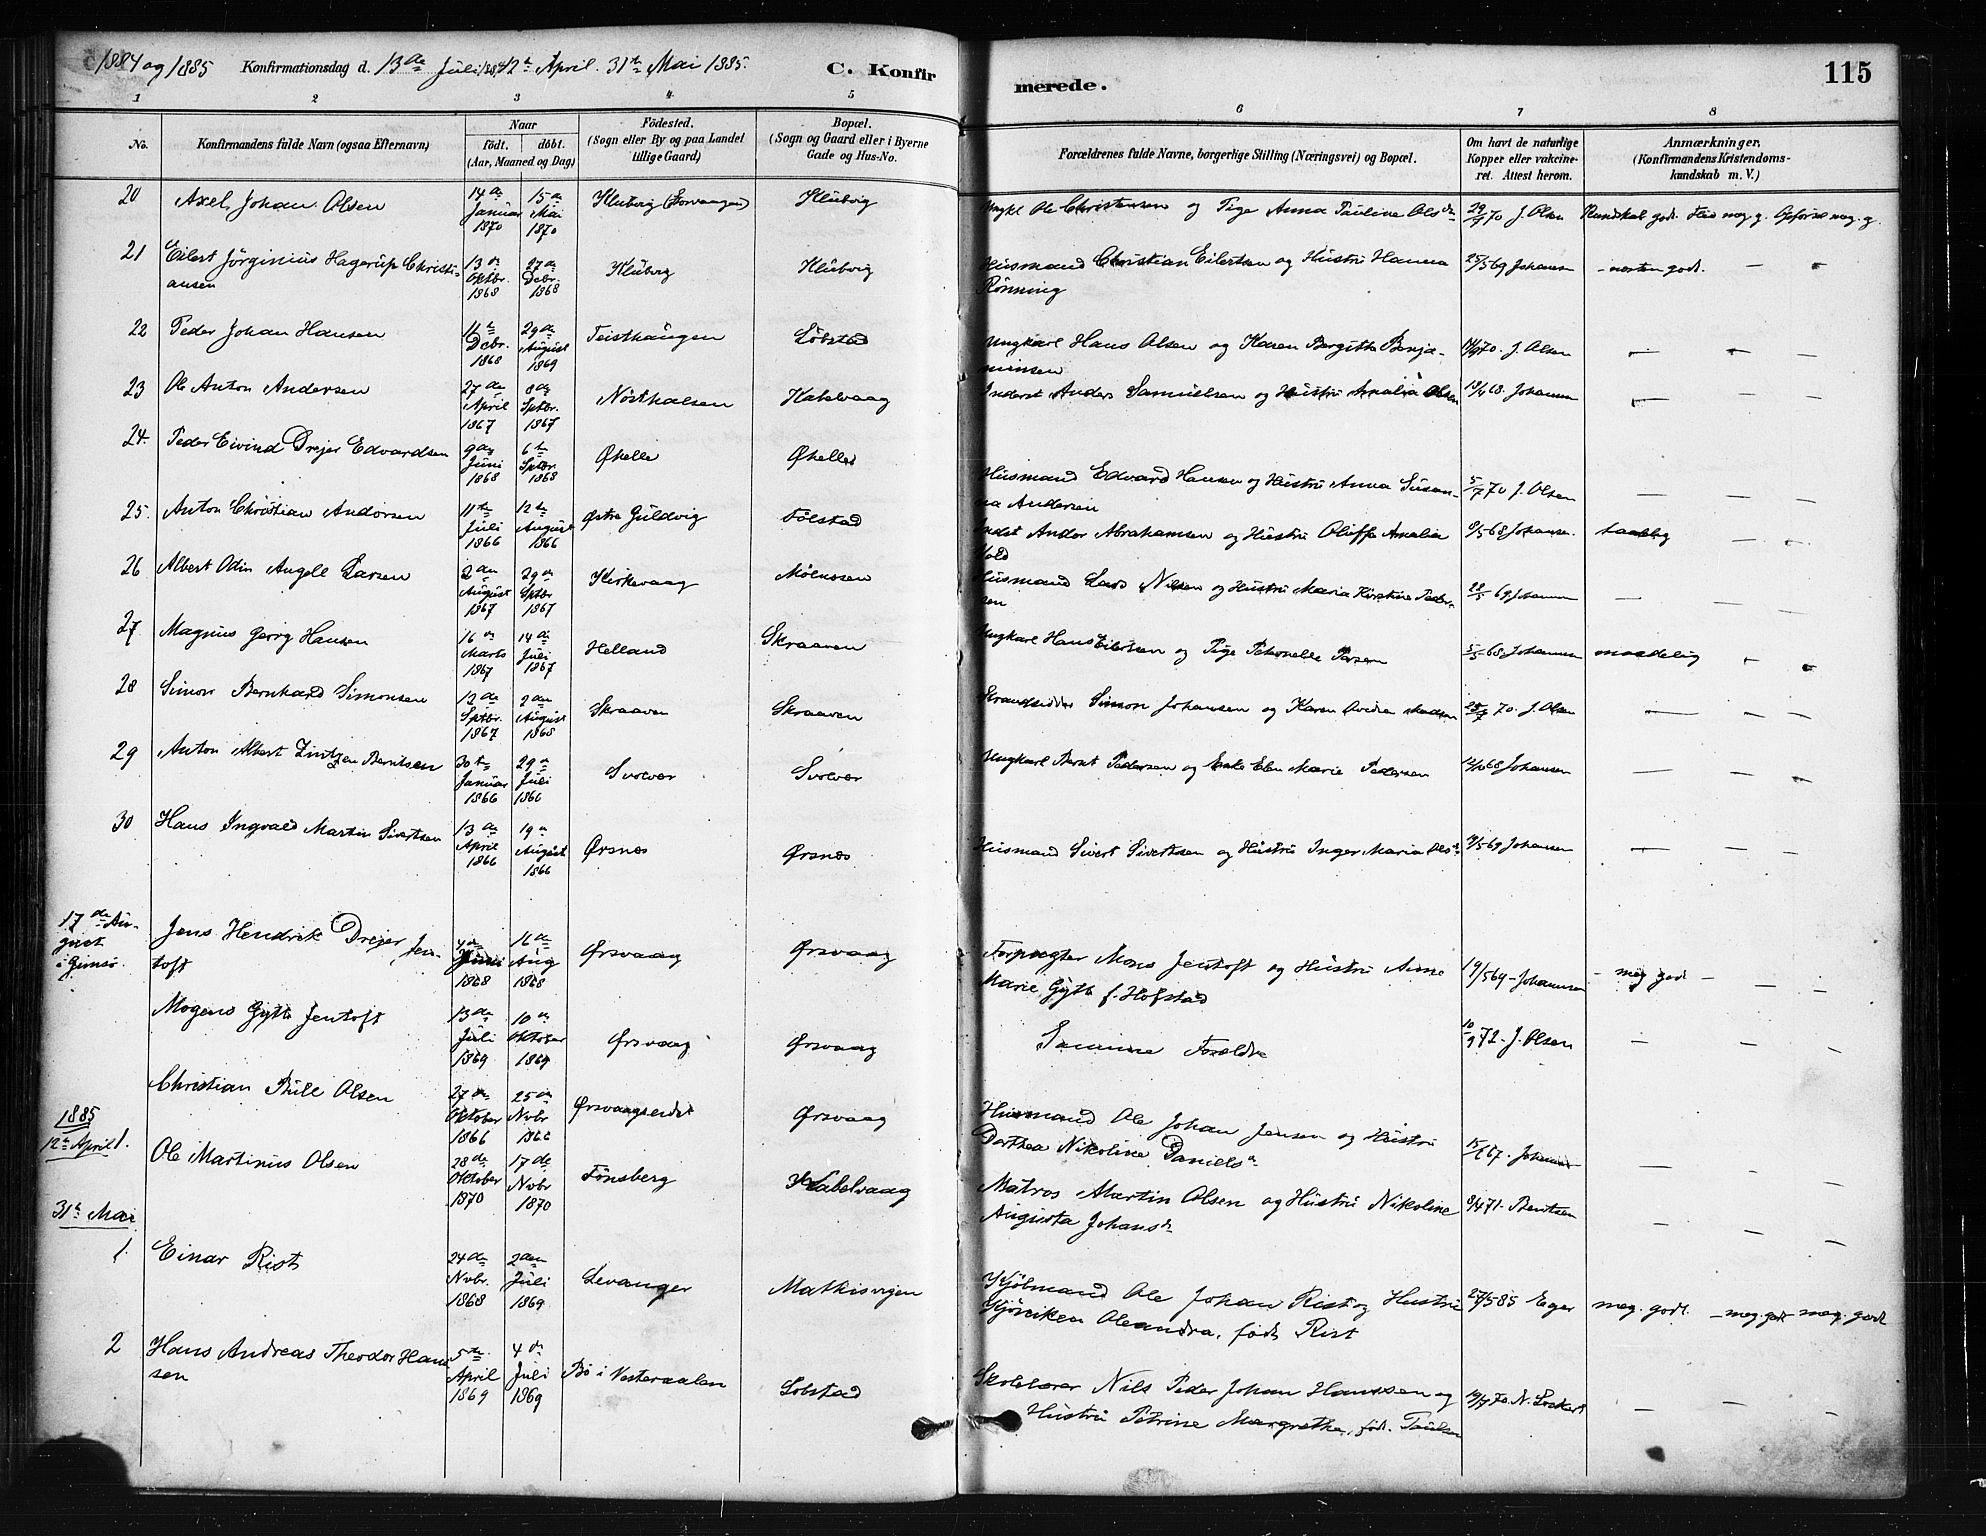 1884 og 1885 Konfirmationsdag d. 13de Juli 1884 12te April. 31te Mai 1885. C. Konfirmerede. 115
1 2 3 4 5 6 7 8
No. Konfirmandens fulde Navn (ogsaa Efternavn) Naar født. døbt. (Aar, Maaned og Dag) Fødested. (Sogn eller By og paa Landet tillige Gaard) Bopæl. (Sogn og Gaard eller i Byerne Gade og Hus-No. Forældrenes fulde Navne, borgerlige Stilling (Næringsvei) og Bopæl. Om havt de naturlige Kopper eller vakcineret. Attest herom. Anmærkninger. (Konfirmandens Kristendomskundskab m. V.)
20 Axel Johan Olsen 14de Januar 1870 15de Mai 1870 Klubvig Klubvig Ungkl Ole Christensen og Pige Anna Pauline Olsdr 70 J. Olsen Kundskab godt Flid meg g. Opførsel meg. g.
21 Eilert Jørginius Hagerup Christiansen 13de Oktbr. 1868 27de Decbr. 1868 Klubvig Klubvig Husmand Christian Eilertsen og Hustru Hanna Rønning 25/5 69 Johansen - næsten godt. — -
22 Peder Johan Hansen 11te Decbr. 1868 29de August 1869 Teisthaugen Løbstad Ungkarl Hans Olsen og Karen Bergitte Benjaminsen 70. J. Olsen — - —
23 Ole Anton Andersen 27de April 1867 8de Sptbr. 1867 Nøsthalsen Kabelvaag Inderst Anders Samuelsen og Hustru Amalia Olsen 68 Johansen — - —
24. Peder Eivind Drejer Edvardsen 9de Juni 1868 6te Sptbr. 1868 Ørkelle Ørkelle Husmand Edvard Hansen og Hustru Anna Susanna Andersen 5/7 70 J. Olsen — — —
25. Anton Christian Andersen 11te Juli 1866 12te August 1866 Østre Guldvig Følstad Indst Ander Abrahamsen og Hustru Oluffa Amalia Wold 8/5 68 Johansen. taalelig - -
26 Albert Odin Angell Larsen 2den August 1867 29de Sptbr 1867 Kirkevaag Mølnosen Husmand Lars Nilsen og Hustru Maria Kirstine Pedersen 28/5 69 Johansen — — —
27 Magnus Georg Hansen 16de Marts 1867 14de Juli 1867 Helland Skraaven Ungkarl Hans Eilertsen og Pige Petronelle 5/5 68 Johansen maadelig - -
28 Simon Bernhard Simonsen 12de Sptbr. 1867 2den August 1868 Skraaven Skraaven Strandsidder Simon Johansen og Karen 70. J. Olsen — — —
29 Anton Albert Zintzen Berntsen 30te Januar 1866 29de Juli 1866 Svolvær Svolvær Ungkarl Bernt Pedersen og Enke Elen Marie Pedersen 68 Johansen — — —
30 Hans Ingvald Martin Sivertsen 13de April 1866 19de August 1866 Ørsnes Ørsnes Husmand Sivert Sivertsen og Hustru Inger Maria Olsdr 69 Johansen — — —
17de August i Gimsø. Jens Hendrik Drejer Jentoft 4de Juni 1868 16de Aug 1868 Ørsvaag Ørsvaag Forpagter Mons Jentoft og Hustru Anne Marie Gytte f. Hofstad 19/5 69 - Johansen - meg godt — — —
Mogens Gytte Jentoft 13de Juli 1869 10de Oktober 1869 Ørsvaag Ørsvaag Samme Forældre 72 - J. Olsen — — —
Christian Thiil Olsen 27de Oktober 1866 25de Novbr 1866 Ørsvaagseidet Ørsvaag Husmand Ole Johan Jensen og Hustru Dorthea Nikoline Danielsdr 67. Johansen — - —
1885 12te April 1. Ole Martinus Olsen 28de Oktober 1870 17de Novbr 1870 Tønsberg Kabelvaag Matros Martin Olsen og Hustru Nikoline Augusta Johansdr 8/4 71. Berntsen — — —
31te Mai
1. Einar Rist 24de Novbr. 1868 2den Juli 1869 Levanger Mathisvigen Kjøbmand Ole Johan Rist og Hustru Oleandra, født Rist 27/5 85 Eger meg. godt. - meg. godt meg. godt
2 Hans Andreas Theodor Hanssen 5te April 1869 4de Juli 1869 Bø i Vesteraalen Løbstad Skolelærer Nils Peder Johan Hanssen og Hustru Petrine Margrethe, født. Paulsen 70. N. — — —